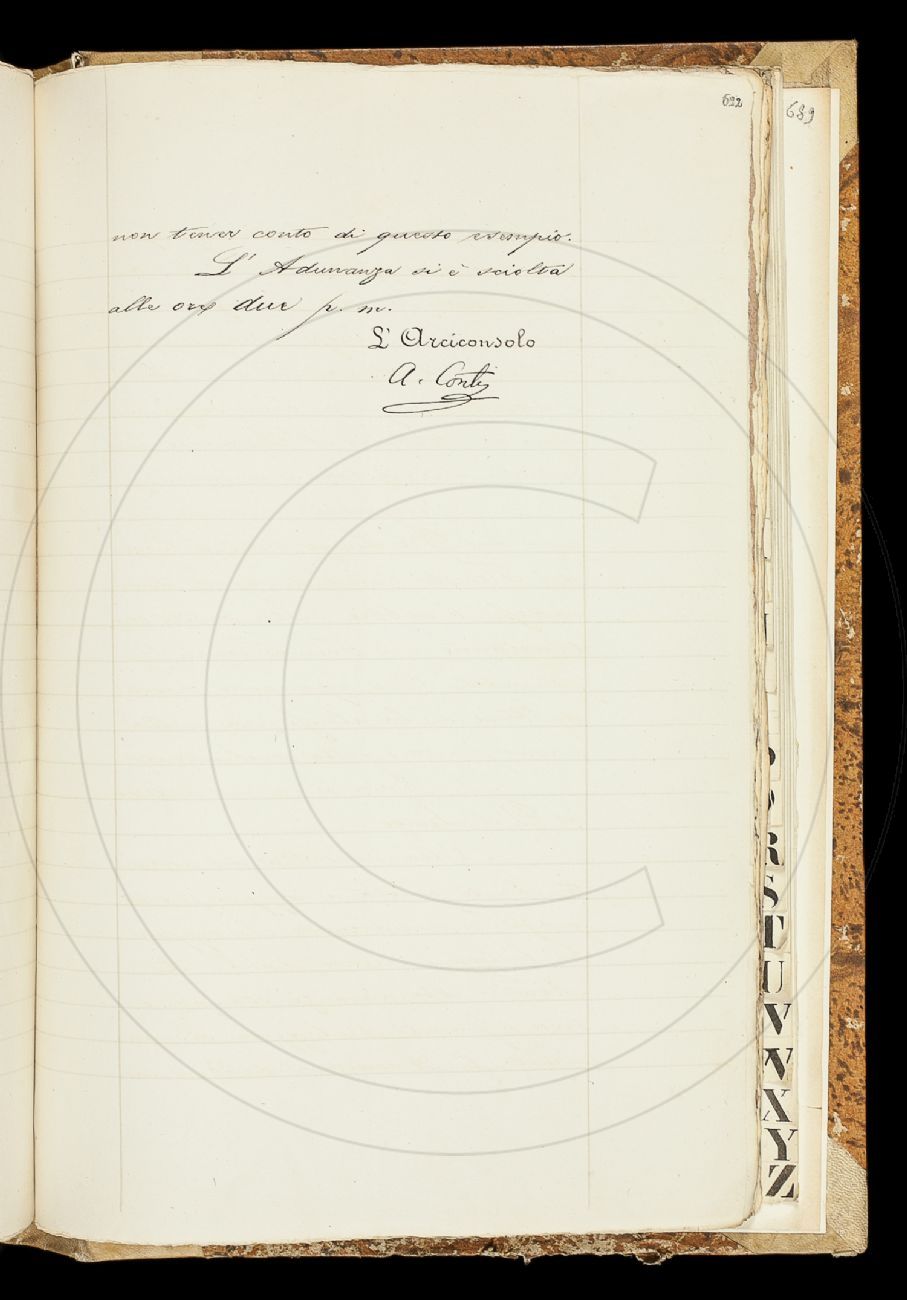 622
689
non tener conto di questo esempio.
L'Adunanza si è sciolta
alle ore due p. m.
L'Arciconsolo
A. Conti
R
S
T
U
V
W
X
Y
Z